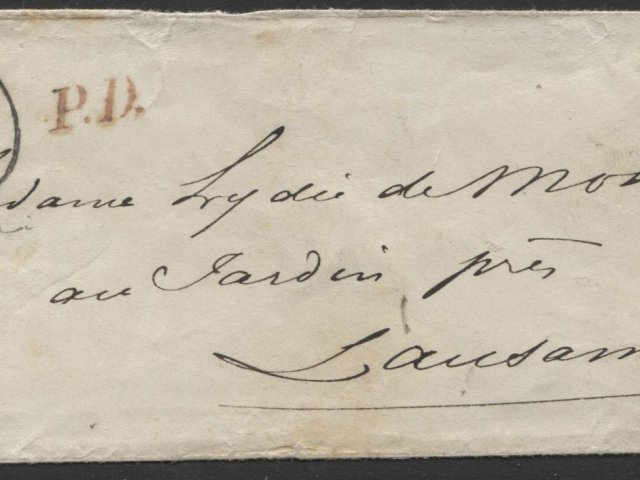 P.D.
adame Lydie de Mo
au Jardin près
Lausan